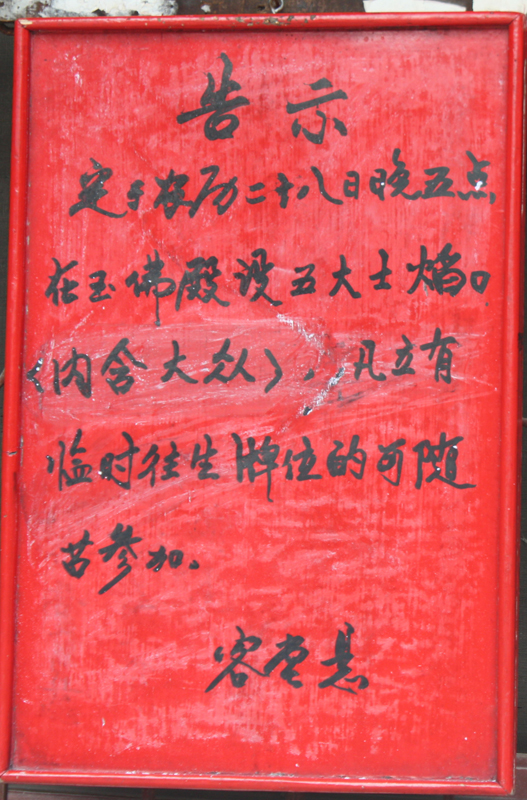 告示
定于农历二十八日晚五点
在玉佛殿设五大士焰口
《内含大众》,凡立有
临时往生牌位的可随
苦参加.
客堂悬